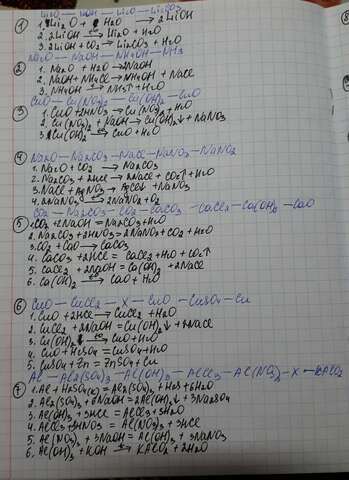 Li2O — LiOH — Li2O — Li2CO3
① 1. Li2O + H2O → 2LiOH
2. 2LiOH → Li2O + H2O
3. 2LiOH + CO2 → Li2CO3 + H2O
Na2O — NaOH — NH4OH — NH3
② 1. Na2O + H2O → 2NaOH
2. NaOH + NH4Cl → NH4OH + NaCl
3. NH4OH → NH3↑ + H2O
CuO — Cu(NO3)2 — Cu(OH)2 — CuO
③ 1. CuO + 2HNO3 → Cu(NO3)2 + H2O
2. Cu(NO3)2 + NaOH → Cu(OH)2↓ + NaNO3
3. Cu(OH)2 → CuO + H2O
④ Na2O — Na2CO3 — NaCl — NaNO3 — NaNO2
1. Na2O + CO2 → Na2CO3
2. Na2CO3 + 2HCl → 2NaCl + CO2↑ + H2O
3. NaCl + AgNO3 → AgCl↓ + NaNO3
4. 2NaNO3 → 2NaNO2 + O2
CO2 — Na2CO3 — CO2 — CaCO3 — CaCl2 — Ca(OH)2 — CaO
⑤ 1. CO2 + 2NaOH = Na2CO3 + H2O
2. Na2CO3 + 2HNO3 = 2NaNO3 + CO2 + H2O
3. CO2 + CaO → CaCO3
4. CaCO3 + 2HCl = CaCl2 + H2O + CO2↑
5. CaCl2 + 2NaOH = Ca(OH)2 + 2NaCl
6. Ca(OH)2 → CaO + H2O
⑥ CuO — CuCl2 — X — CuO — CuSO4 — Cu
1. CuO + 2HCl → CuCl2 + H2O
2. CuCl2 + 2NaOH = Cu(OH)2↓ + 2NaCl
3. Cu(OH)2 → CuO + H2O
4. CuO + H2SO4 = CuSO4 + H2O
5. CuSO4 + Zn = ZnSO4 + Cu
Al — Al2(SO4)3 — Al(OH)3 — AlCl3 — Al(NO3)3 — X — KAlO2
⑦ 1. Al + H2SO4(к) = Al2(SO4)3 + H2S + 6H2O
2. Al2(SO4)3 + 6NaOH = 2Al(OH)3↓ + 3Na2SO4
3. Al(OH)3 + 3HCl = AlCl3 + 3H2O
4. AlCl3 + 3HNO3 = Al(NO3)3 + 3HCl
5. Al(NO3)3 + 3NaOH = Al(OH)3 + 3NaNO3
6. Al(OH)3 + KOH → KAlO2 + 2H2O